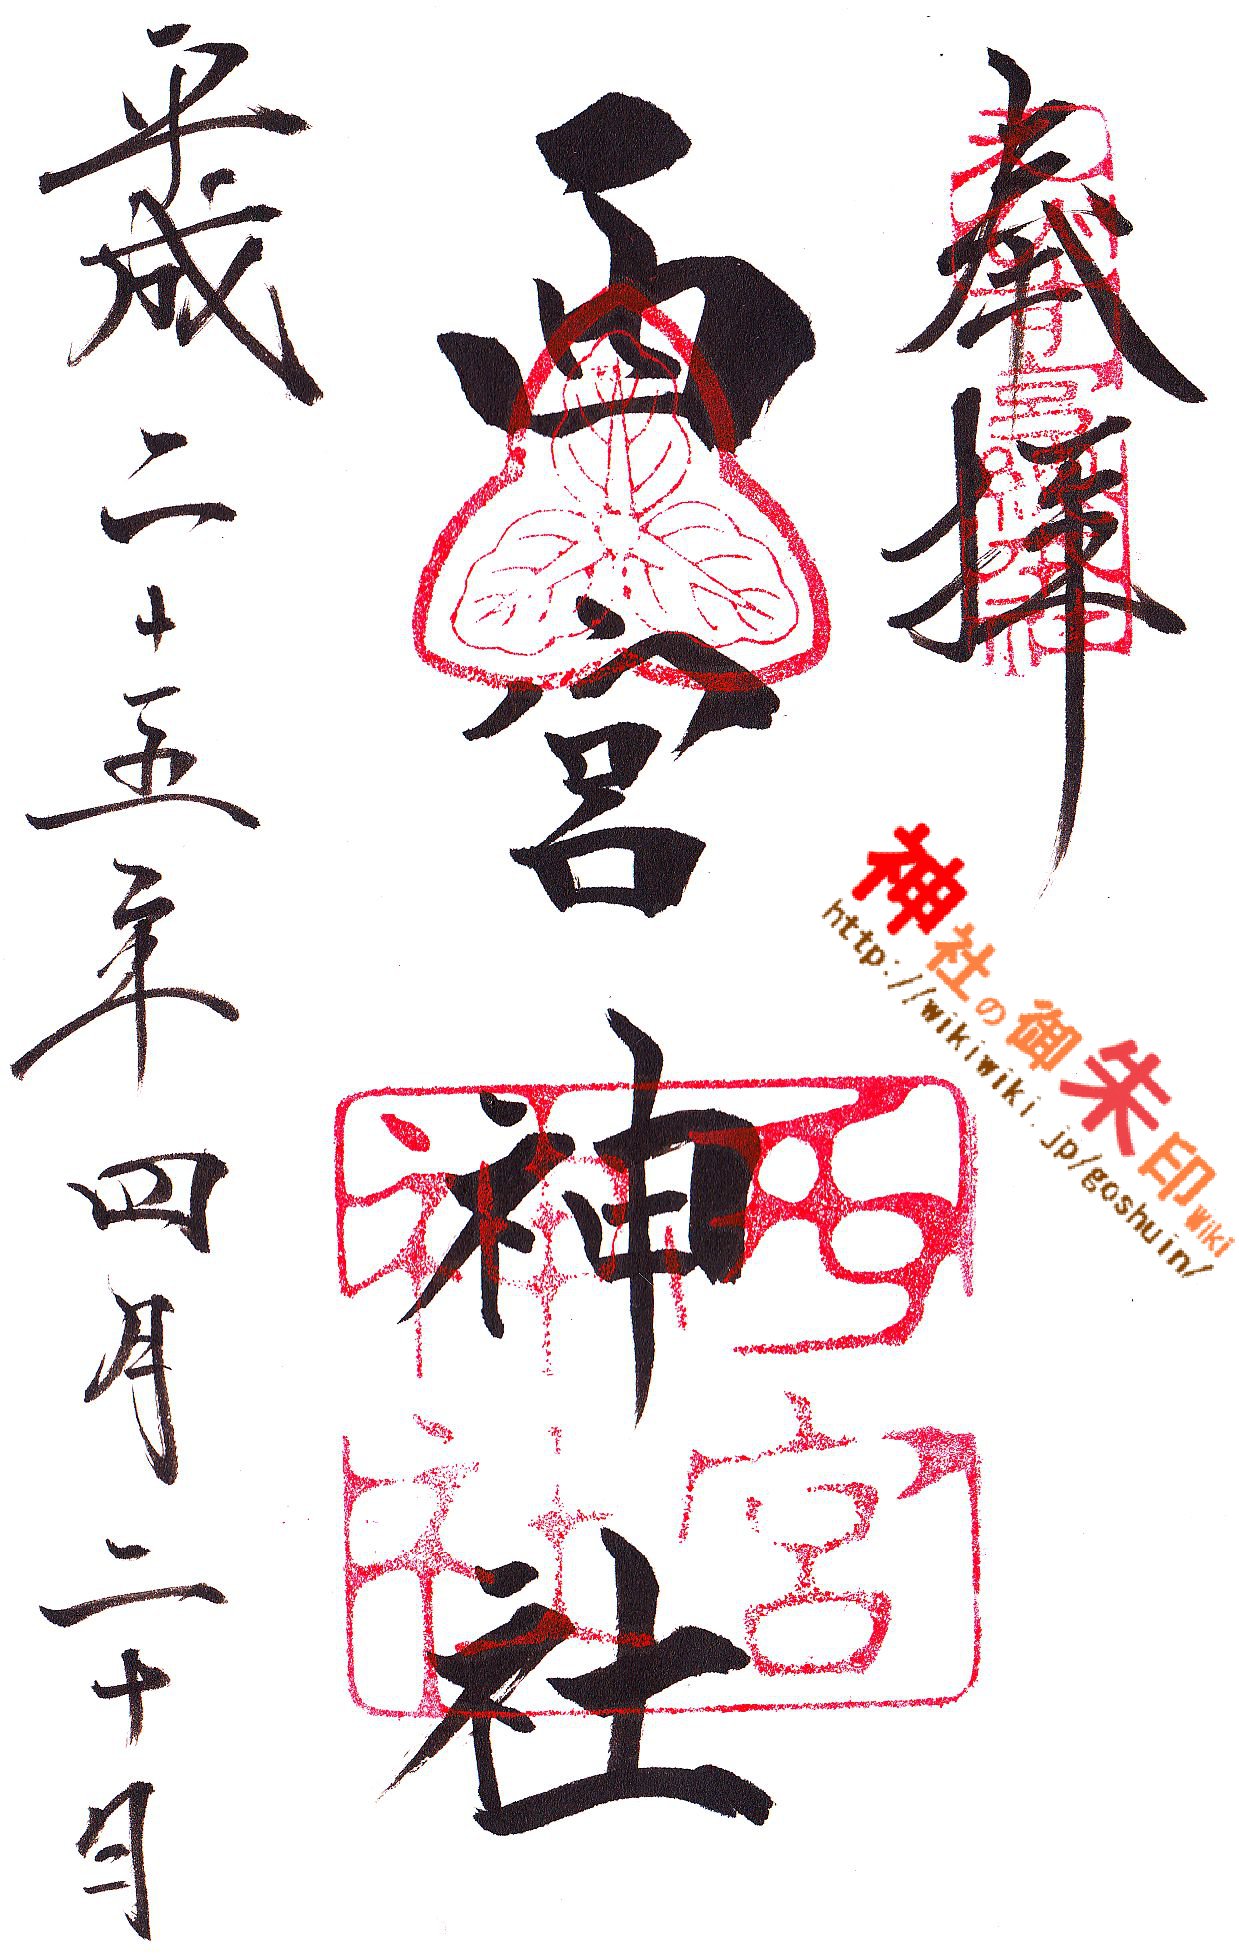 奉拝
西宮神社
平成二十五年四月二十日
西宮神社
神社の御朱印wiki
http://wikiwiki.jp/goshuin/